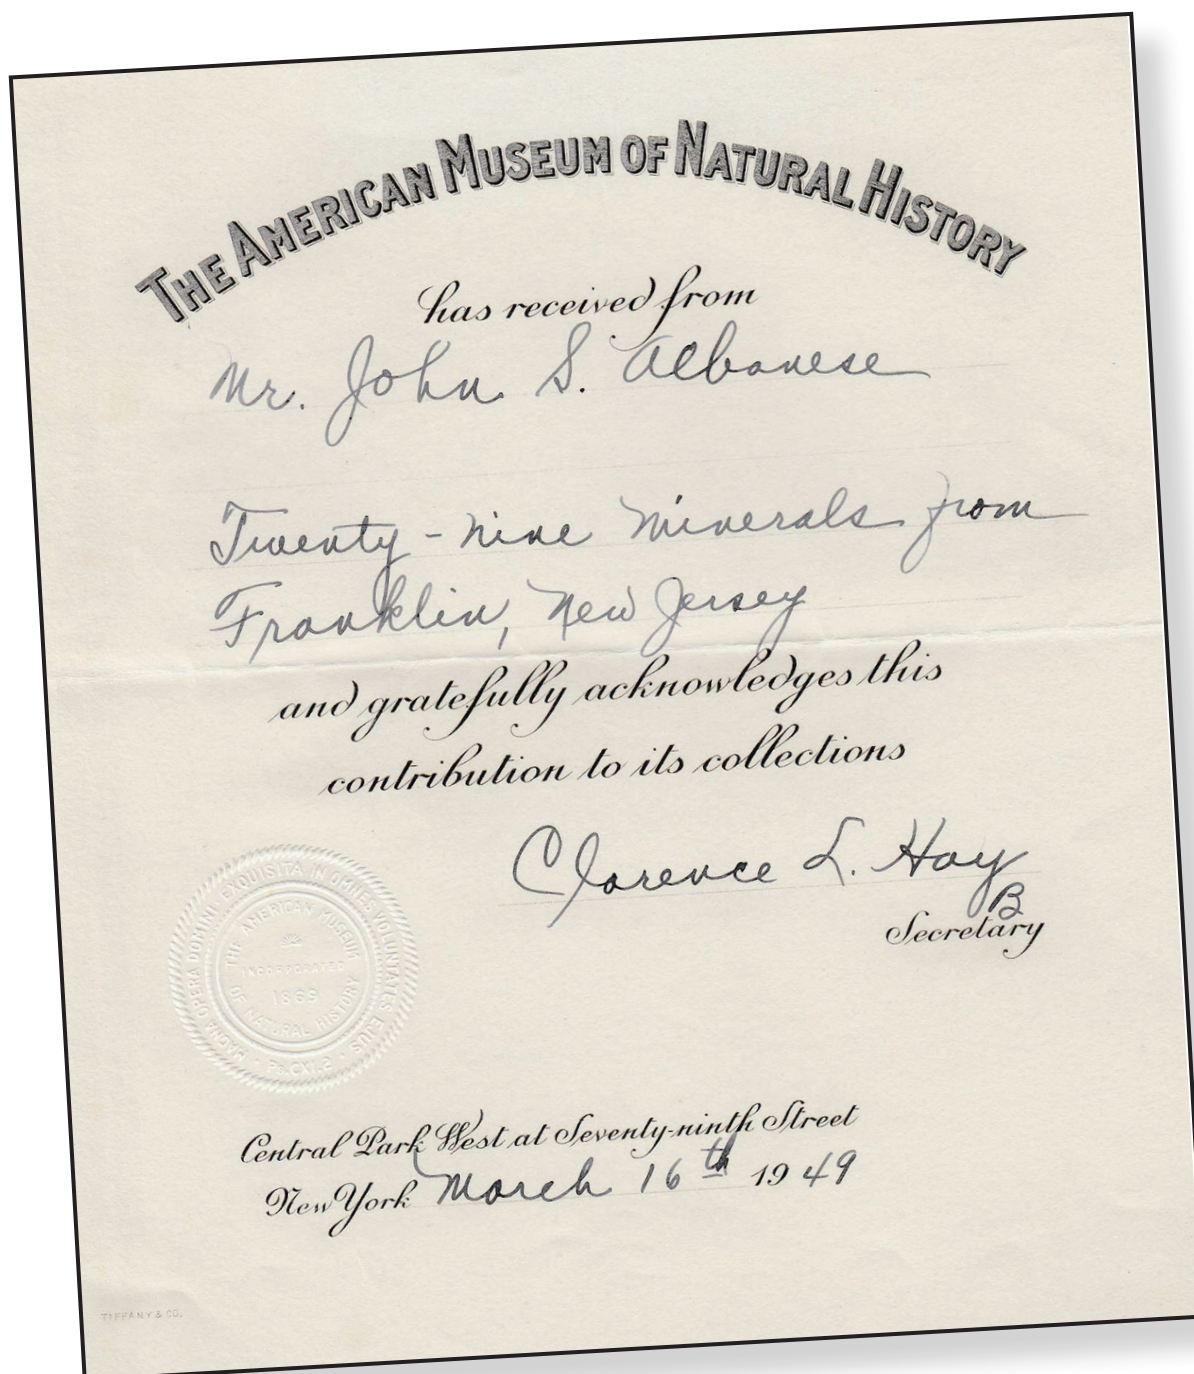 THE AMERICAN MUSEUM OF NATURAL HISTORY
has received from
Mr. John S. Albanese
Twenty-nine minerals from
Franklin, New Jersey
and gratefully acknowledges this
contribution to its collections
Clarence L. Hay
B
Secretary
MAGNA OPERA DOMINI EXQUISITA IN OMNES VOLUNTATES EJUS
· Ps.CXI.2 ·
THE AMERICAN MUSEUM
INCORPORATED
1869
OF NATURAL HISTORY
Central Park West at Seventy-ninth Street
New York March 16th 1949
TIFFANY & CO.